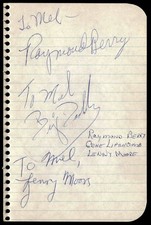 To Mel-
Raymond Berry
To Mel
Big Daddy
RAYMOND BERRY
GENE LIPSCOMB
LENNY MOORE
To Mel,
Lenny Moore